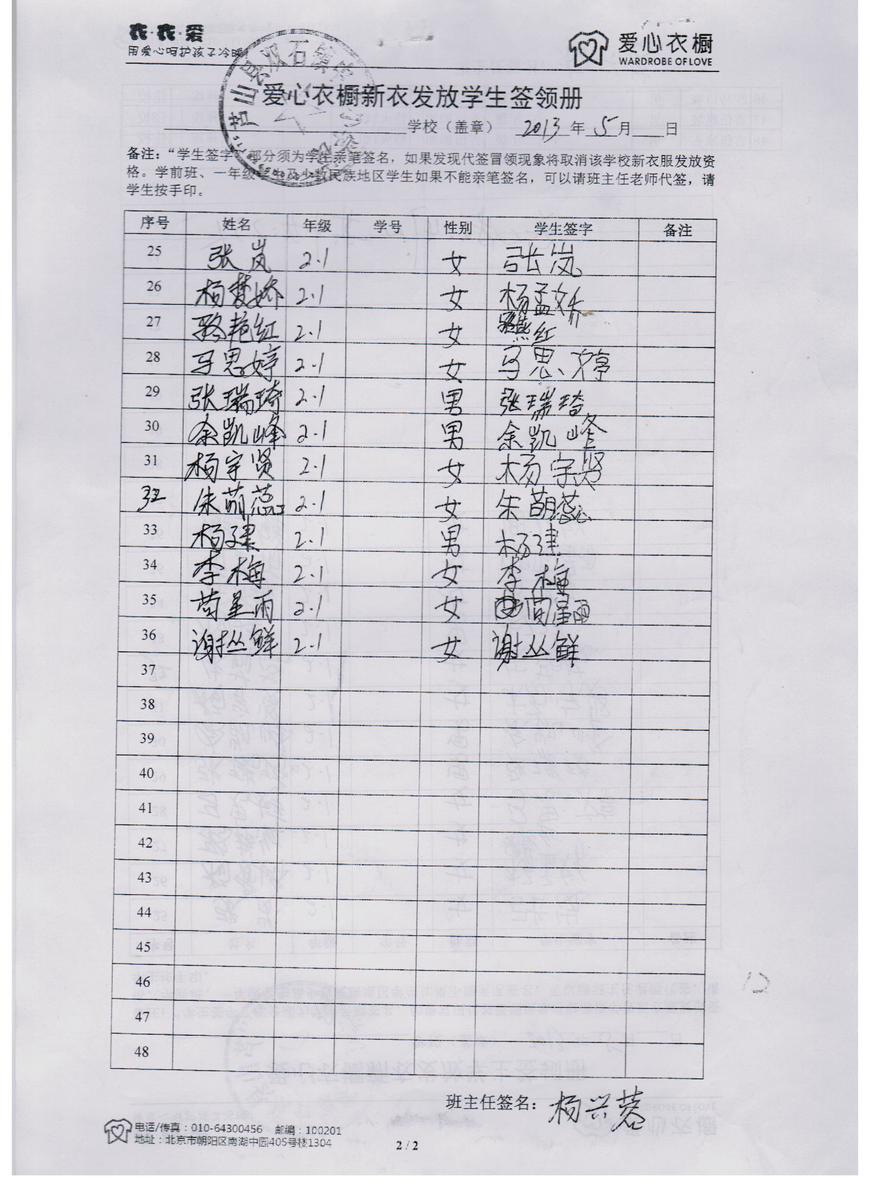 衣·衣·爱
用爱心呵护孩子冷暖!
爱心衣橱
WARDROBE OF LOVE
爱心衣橱新衣发放学生签领册
学校（盖章） 2013 年 5 月 日
备注："学生签字"部分须为学生亲笔签名，如果发现代签冒领现象将取消该学校新衣服发放资
格。学前班、一年级学生及少数民族地区学生如果不能亲笔签名，可以请班主任老师代签，请
学生按手印。
序号 姓名 年级 学号 性别 学生签字 备注
25 张岚 2.1 女 张岚
26 杨梦娇 2.1 女 杨孟娇
27 骆艳红 2.1 女 红
28 马思婷 2.1 女 马思婷
29 张瑞琦 2.1 男 张瑞琦
30 余凯峰 2.1 男 余凯峰
31 杨宇贤 2.1 女 杨宇贤
32 朱萌蕊 2.1 女 朱萌蕊
33 杨建 2.1 男 杨建
34 李梅 2.1 女 李梅
35 苟星雨 2.1 女 苟星雨
36 谢丛鲜 2.1 女 谢丛鲜
37
38
39
40
41
42
43
44
45
46
47
48
12
班主任签名：杨兴蓉
电话/传真：010-64300456 邮编：100201
地址：北京市朝阳区南湖中园405号楼1304
2 / 2